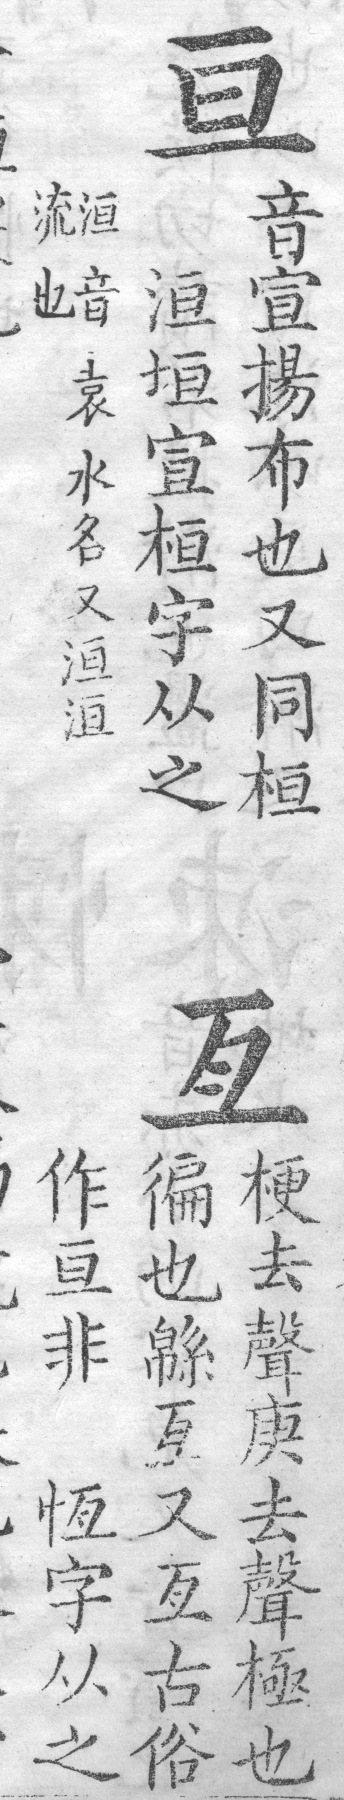 亘
音宣揚布也又同桓
洹垣宣桓字从之
洹音袁水名又洹洹
流也
亙
梗去聲庚去聲極也
徧也緜亙又亙古俗
作亘非 恆字从之